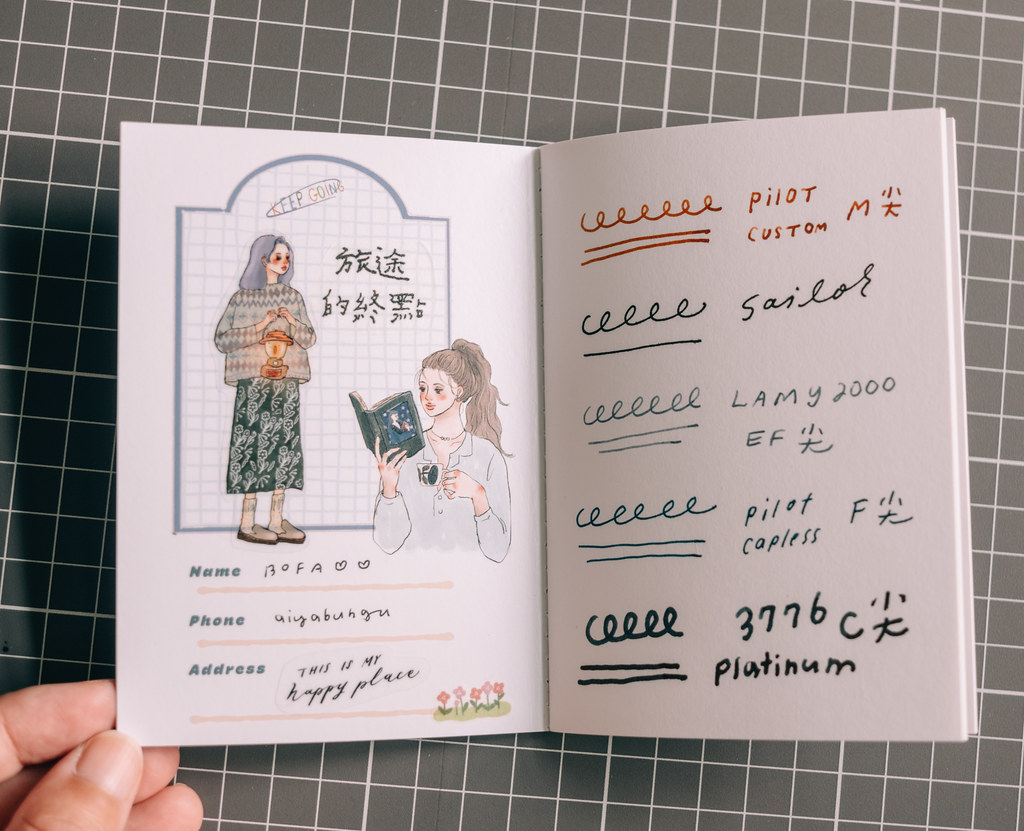 KEEP GOING
旅途
的終點
Name BOFA♡♡
Phone aiyabungu
Address THIS IS MY
happy place
PILOT
CUSTOM M尖
Sailor
LAMY 2000
EF 尖
pilot F尖
capless
3776 C尖
platinum